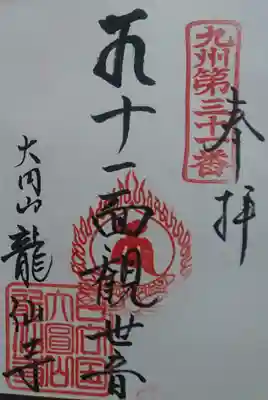 奉拝
九州第三十二番
十一面観世音
大円山 龍仙寺
大圓山